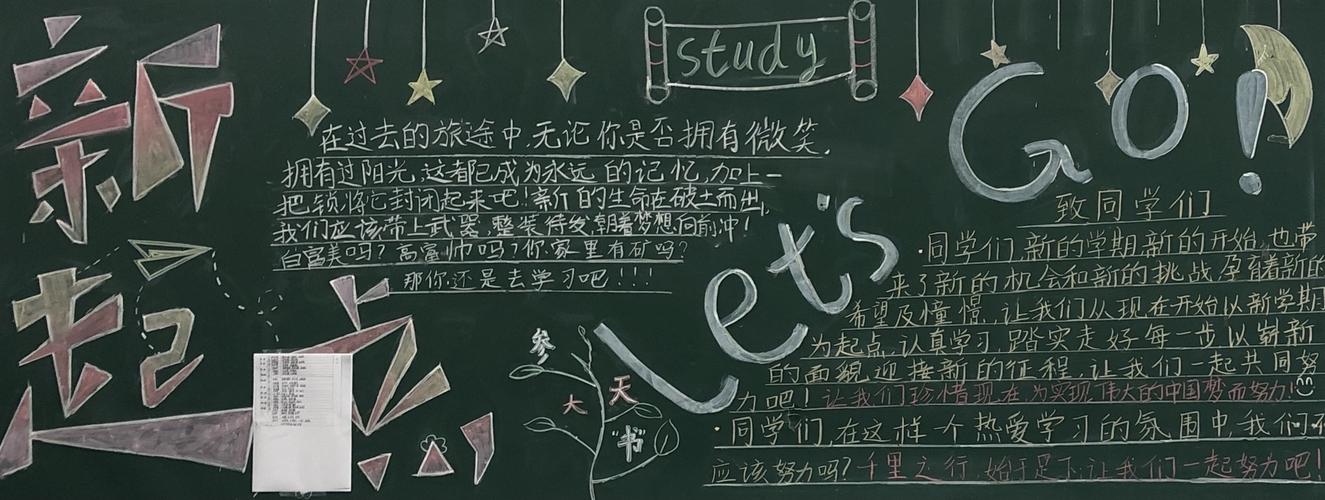 新起点
study
在过去的旅途中,无论你是否拥有微笑,
拥有过阳光,这都已成为永远的记忆,加上一
把锁将它封闭起来吧!新的生命在破土而出,
我们应该带上武器,整装待发,朝着梦想向前冲!
白富美吗?高富帅吗?你家里有矿吗?
那你还是去学习吧!!!
Let's
GO!
参
天
大
"书"
致同学们
·同学们,新的学期,新的开始,也带
来了新的机会和新的挑战,孕育着新的
希望及憧憬,让我们从现在开始以新学期
为起点,认真学习,踏实走好每一步以崭新
的面貌迎接新的征程,让我们一起共同努
力吧!让我们珍惜现在,为实现伟大的中国梦而努力!
·同学们,在这样一个热爱学习的氛围中,我们不
应该努力吗?千里之行,始于足下,让我们一起努力吧!